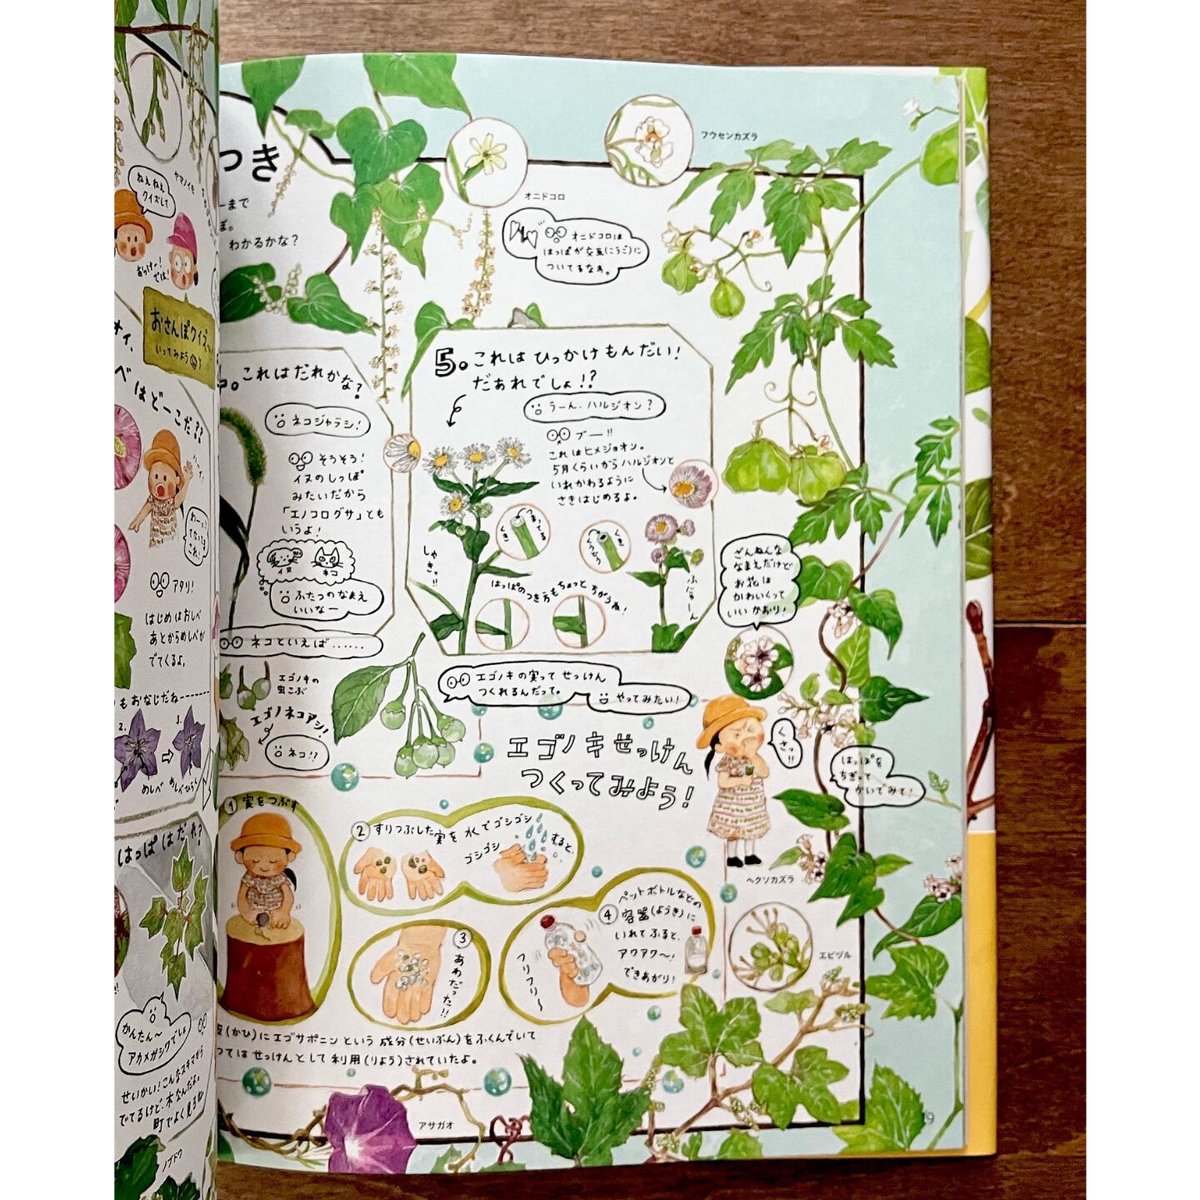 ヤマノイモ
ねぇねぇ
クイズして
おっけー!
では!
おさんぽクイズ
いってみよう
べはどーこだ??
アタリ!
はじめはおしべ
あとからめしべが
でてくるよ。
もおなじだね
2.
3.
めしべ
はっぱはだれ?
かんたん〜
アカメガシワでしょ
せいかい!こんなスキマから
でてるけど、木なんだよ。
町でよく見る
ノブドウ
つき
ーまで
ぽ。
わかるかな?
オニドコロ
フウセンカズラ
オニドコロは
はっぱが交互(こうご)に
ついてるなぁ。
これはだれかな?
ネコジャラシ!
そうそう!
イヌのしっぽ
みたいだから
「エノコログサ」とも
いうよ!
イヌ
ネコ
ふたつのなまえ
いいなー
ネコといえば……
5. これはひっかけもんだい!
だあれでしょ!?
うーん、ハルジオン?
ブー!!
これはヒメジョオン。
5月くらいからハルジオンと
いれかわるように
さきはじめるよ。
つまってる
くき
くき
くうどう
しゃきっ!!
はっぱのつき方もちょっとちがうね!
ふにゃーん
エゴノキの
虫こぶ
エゴノネコアシ!
ネコ!?
エゴノキの実ってせっけん
つくれるんだって。
やってみたい!
ざんねんな
なまえだけど
お花は
かわいくって
いいかおり!
くさっ!!
はっぱを
ちぎって
かいでみて!
ヘクソカズラ
エゴノキせっけん
つくってみよう!
① 実をつぶす
② すりつぶした実を水でゴシゴシ
ゴシゴシ
すると、
③
あわだった!!
ペットボトルなどの
④ 容器(ようき)に
いれてふると、
アワアワ〜!
できあがり!
フリフリ〜
エビヅル
皮(かひ)にエゴサポニンという成分(せいぶん)をふくんでいて
つてはせっけんとして利用(りよう)されていたよ。
アサガオ
9